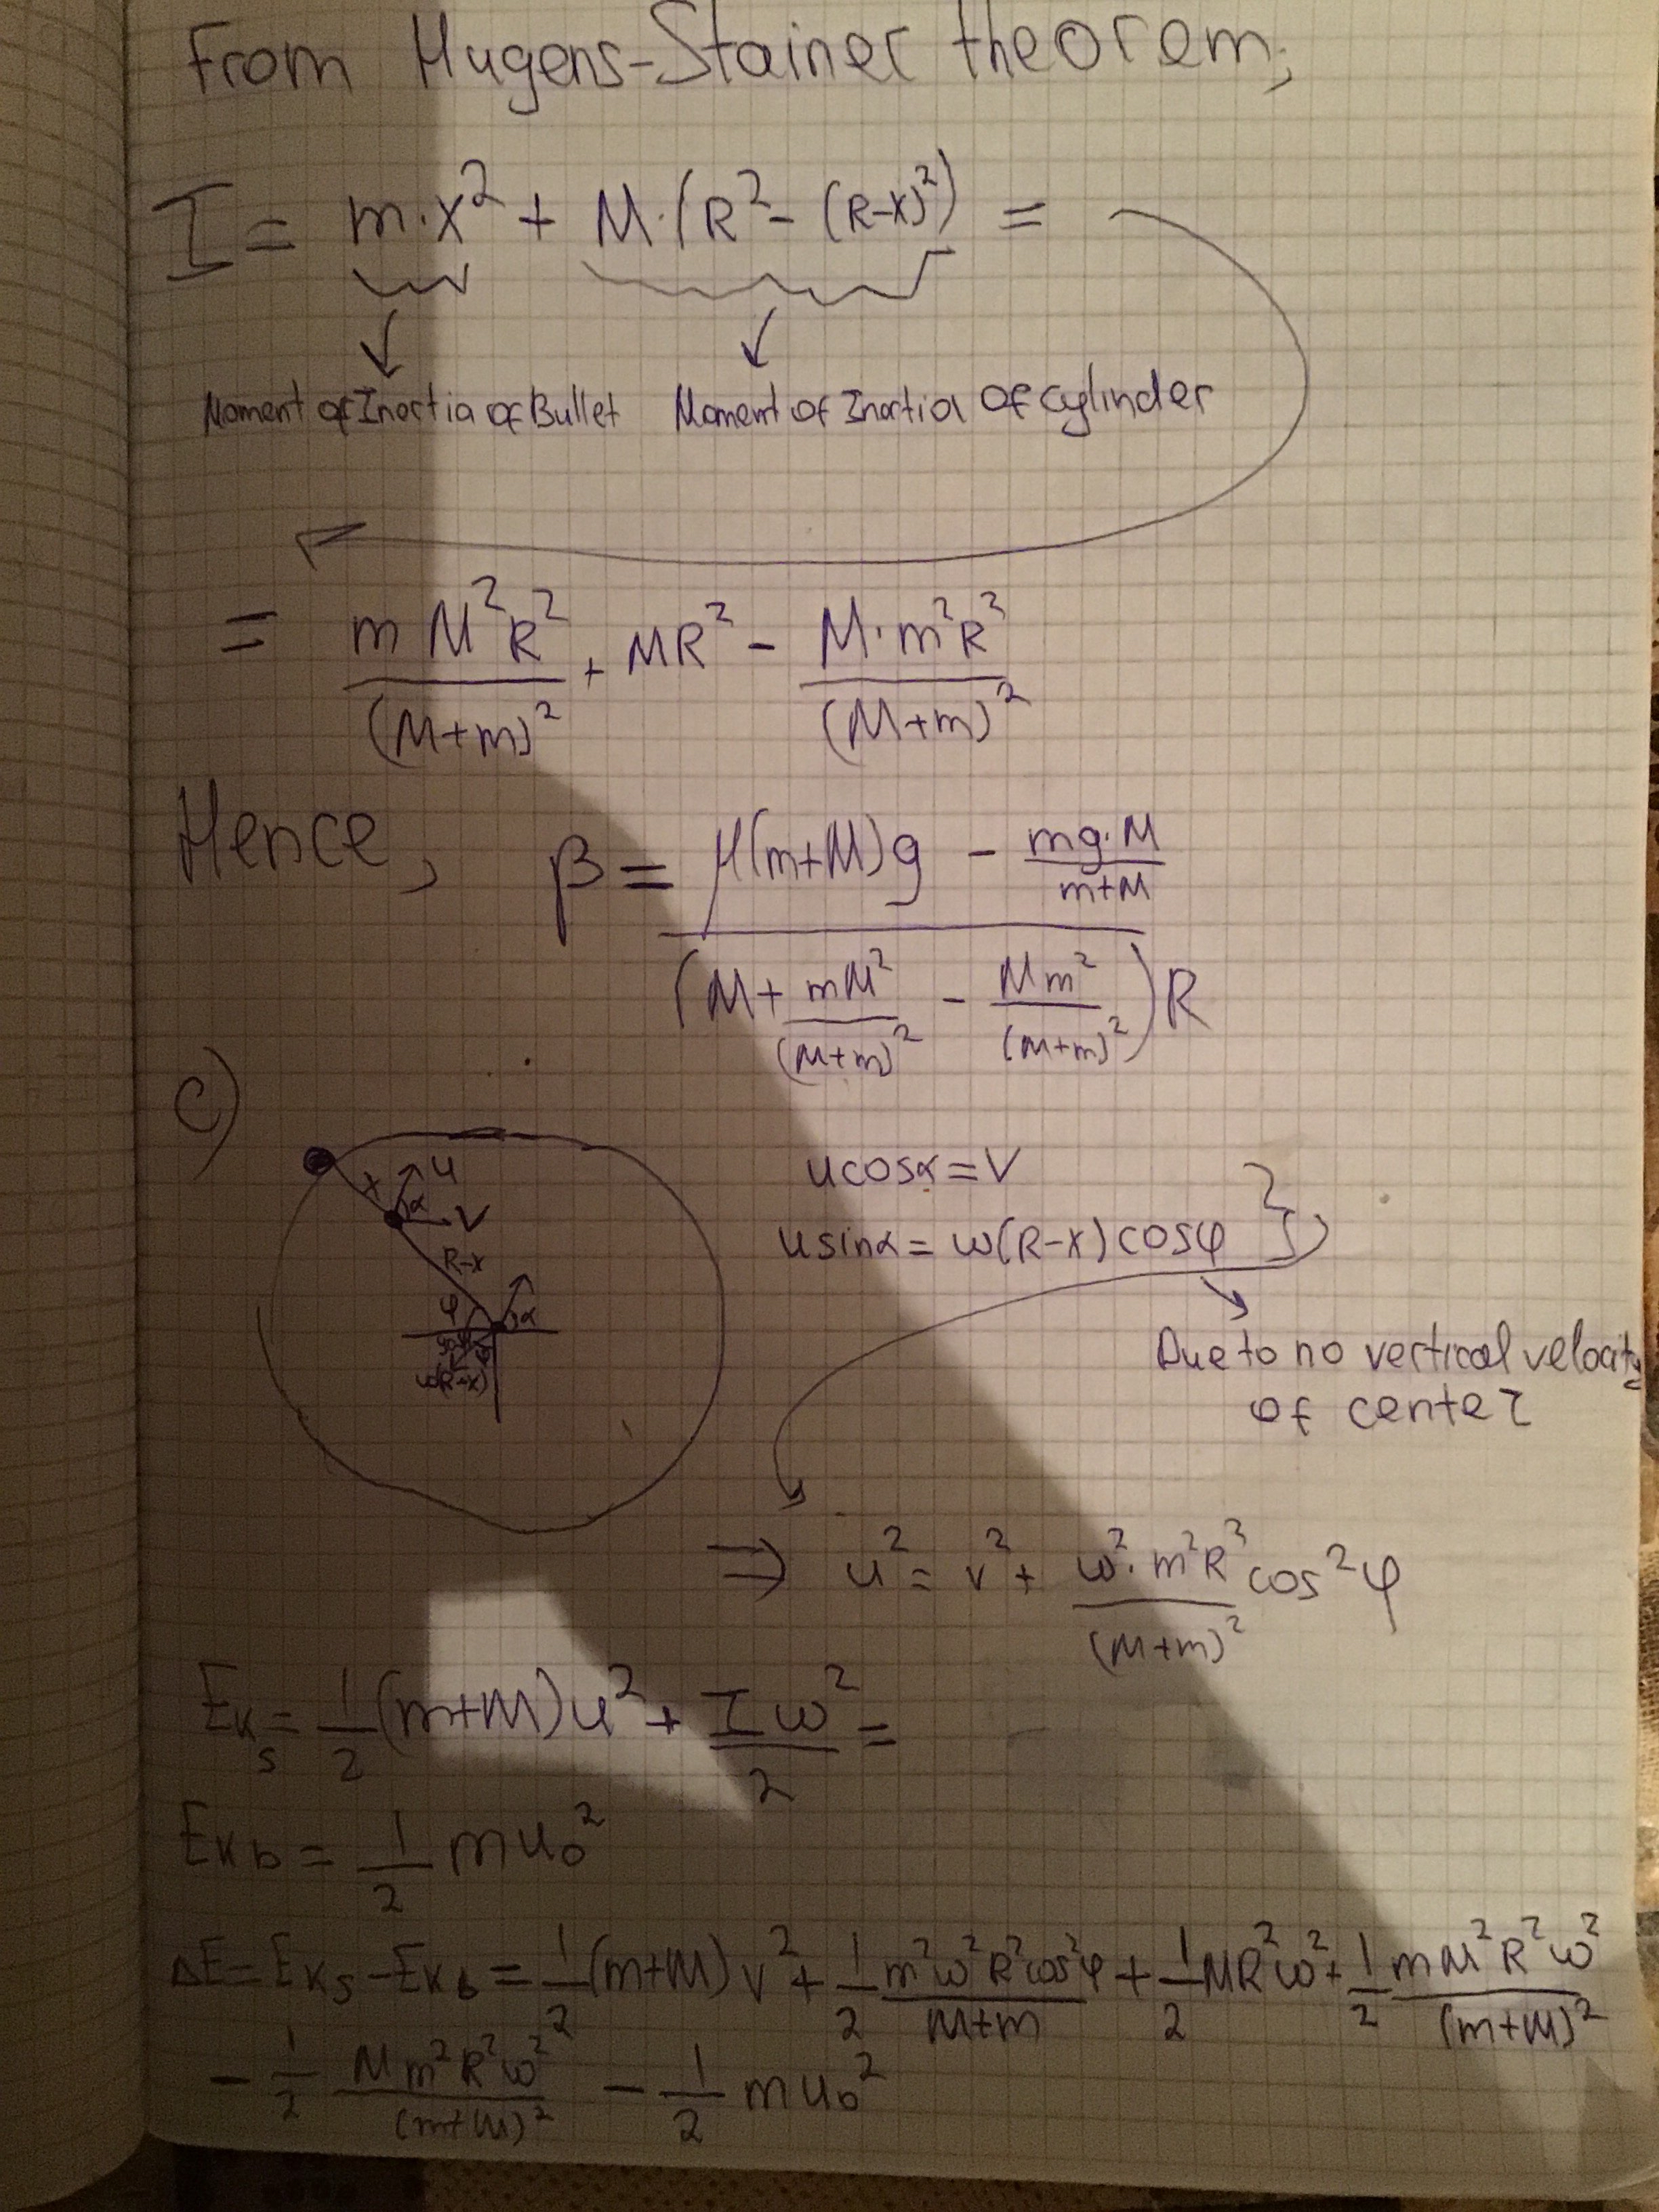 From Hugens-Stainer theorem;
I = m·x² + M·(R² - (R-x)²) =
Moment of Inertia of Bullet Moment of Inertia of cylinder
= mM²R²/(M+m)² + MR² - M·m²R²/(M+m)²
Hence, β = (μ(m+M)g - mg·M/(m+M)) / ((M + mM²/(M+m)² - Mm²/(M+m)²)R)
c)
x u α V
R-x
φ α
ω(R-x)
ucosα = V
usinα = ω(R-x)cosφ
Due to no vertical velocity
of center
⇒ u² = v² + ω²·m²R²/(M+m)² cos²φ
Eks = 1/2 (m+M)u² + Iω²/2 =
Ekb = 1/2 mu₀²
ΔE = Eks - Ekb = 1/2 (m+M)v² + 1/2 m²ω²R²cos²φ/(M+m) + 1/2 MR²ω² + 1/2 mM²R²ω²/(m+M)²
- 1/2 Mm²R²ω²/(m+M)² - 1/2 mu₀²